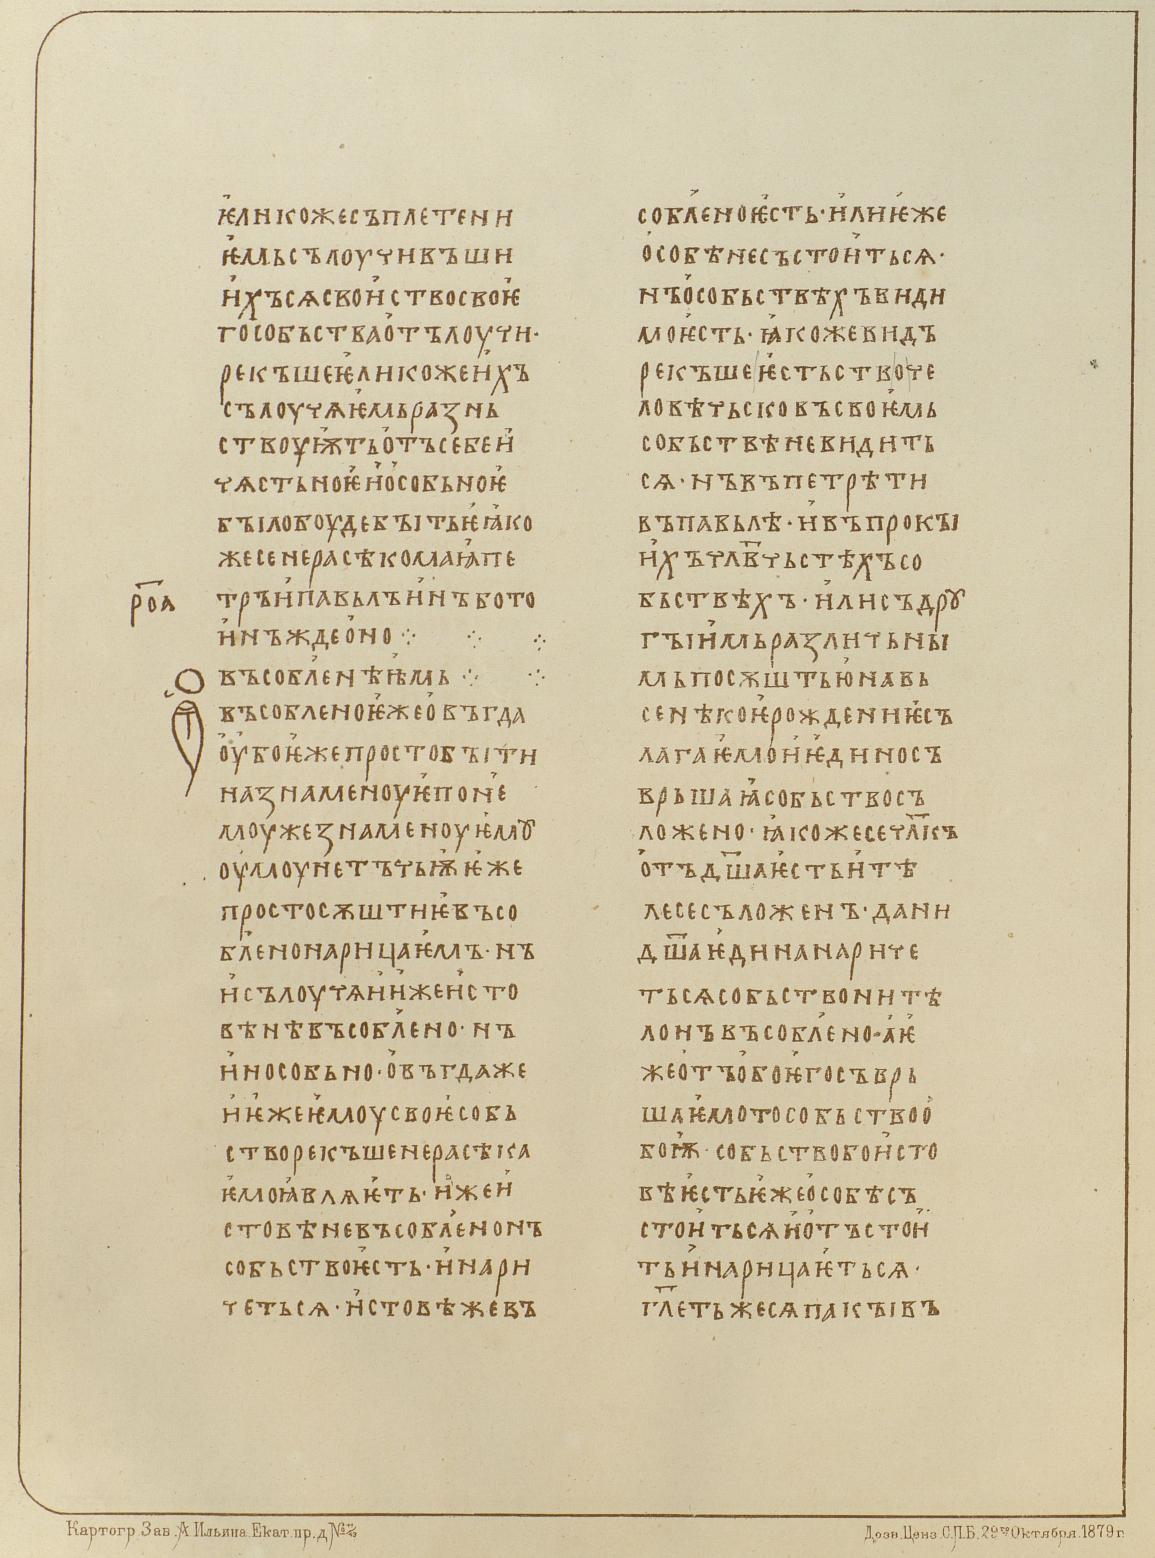 ѥ҆ликожесъплетени
ѥ҆мьсълоучивъши
и҆хъсѧсвои҆ствосвоѥ҆
го҆собьстваѡ҆тълоучи·
рекъшеѥ҆ликожеи҆хъ
сълоучѧѥ҆мьразнь
ствоуѭ҆тьо҆тъсебеи҆
чѧстьноѥ҆и҆о҆собьноѥ҆
бꙑлобоудебꙑтьѥ҆ꙗ҆ко
жесенерасѣкомаꙗ҆пе
роа
тръи҆павьлъи҆инъкото
и҆нъждео҆но
въсобленѣѥ҆мь
въсобленоѥ҆жео҆въгда
о҆убоѥ҆жепростобꙑти
назнаменоуѥ҆поне
моужезнаменоуѥ҆мꙋ
о҆умоунетъчьѭ҆ѥ҆же
простосѫштиѥ҆въсо
бл҄енонарицаѥ҆мъ·нъ
и҆сълоучѧи҆и҆жеи҆сто
вѣнѣвъсобл҄ено·нъ
и҆нособьно·о҆въгдаже
и҆ѥ҆жеѥ҆моусвоѥ҆собь
створекъшенерасѣка
ѥ҆моꙗ҆влѧѥ҆ть·и҆жеи҆
стовѣневъсобл҄енонъ
собьствоѥ҆сть·и҆нари
четьсѧ·и҆стовѣжевъ
собл҄еноѥ҆сть·и҆лиѥ҆же
о҆собѣнесъстои҆тьсѧ·
нъо҆собьствѣхъвиди
моѥ҆сть·ꙗ҆кожевидъ
рекъшеѥ҆стьствоче
ловѣчьсковъсвоѥ҆мь
собьствѣневидить
сѧ·нъвъпетрѣти
въпавьлѣ·и҆въпрокꙑ
и҆хъчл҃вчьстѣхъсо
бьствѣхъ·и҆лисъдрꙋ
гꙑи҆мьразличьнꙑ
мьпосѫштью҆навь
сенѣкоѥ҆рождениѥ҆съ
лагаѥ҆мои҆ѥ҆диносъ
врьшаꙗ҆собьствосъ
ложено·ꙗ҆кожесечл҃къ
о҆тъдш҃аѥ҆стьи҆тѣ
лесесъложенъ·дани
дш҃аѥ҆динанарите
тьсѧсобьствонитѣ
лонъвъсобл҄ено·а҆ѥ҆
жео҆тъо҆боѥ҆госъврь
шаѥ҆мотособьствоо҆
боѭ҆·собьствобои҆сто
вѣѥ҆стьѥ҆жео҆собѣсъ
стои҆тьсѧи҆о҆тъстои҆
тьи҆нарицаѥ҆тьсѧ·
гл҃етьжесѧпакꙑвъ
Картогр. Зав. А. Ильина. Екат. пр. д.
Дозв. Ценз. С.П.Б. 29го Октября. 1879 г.